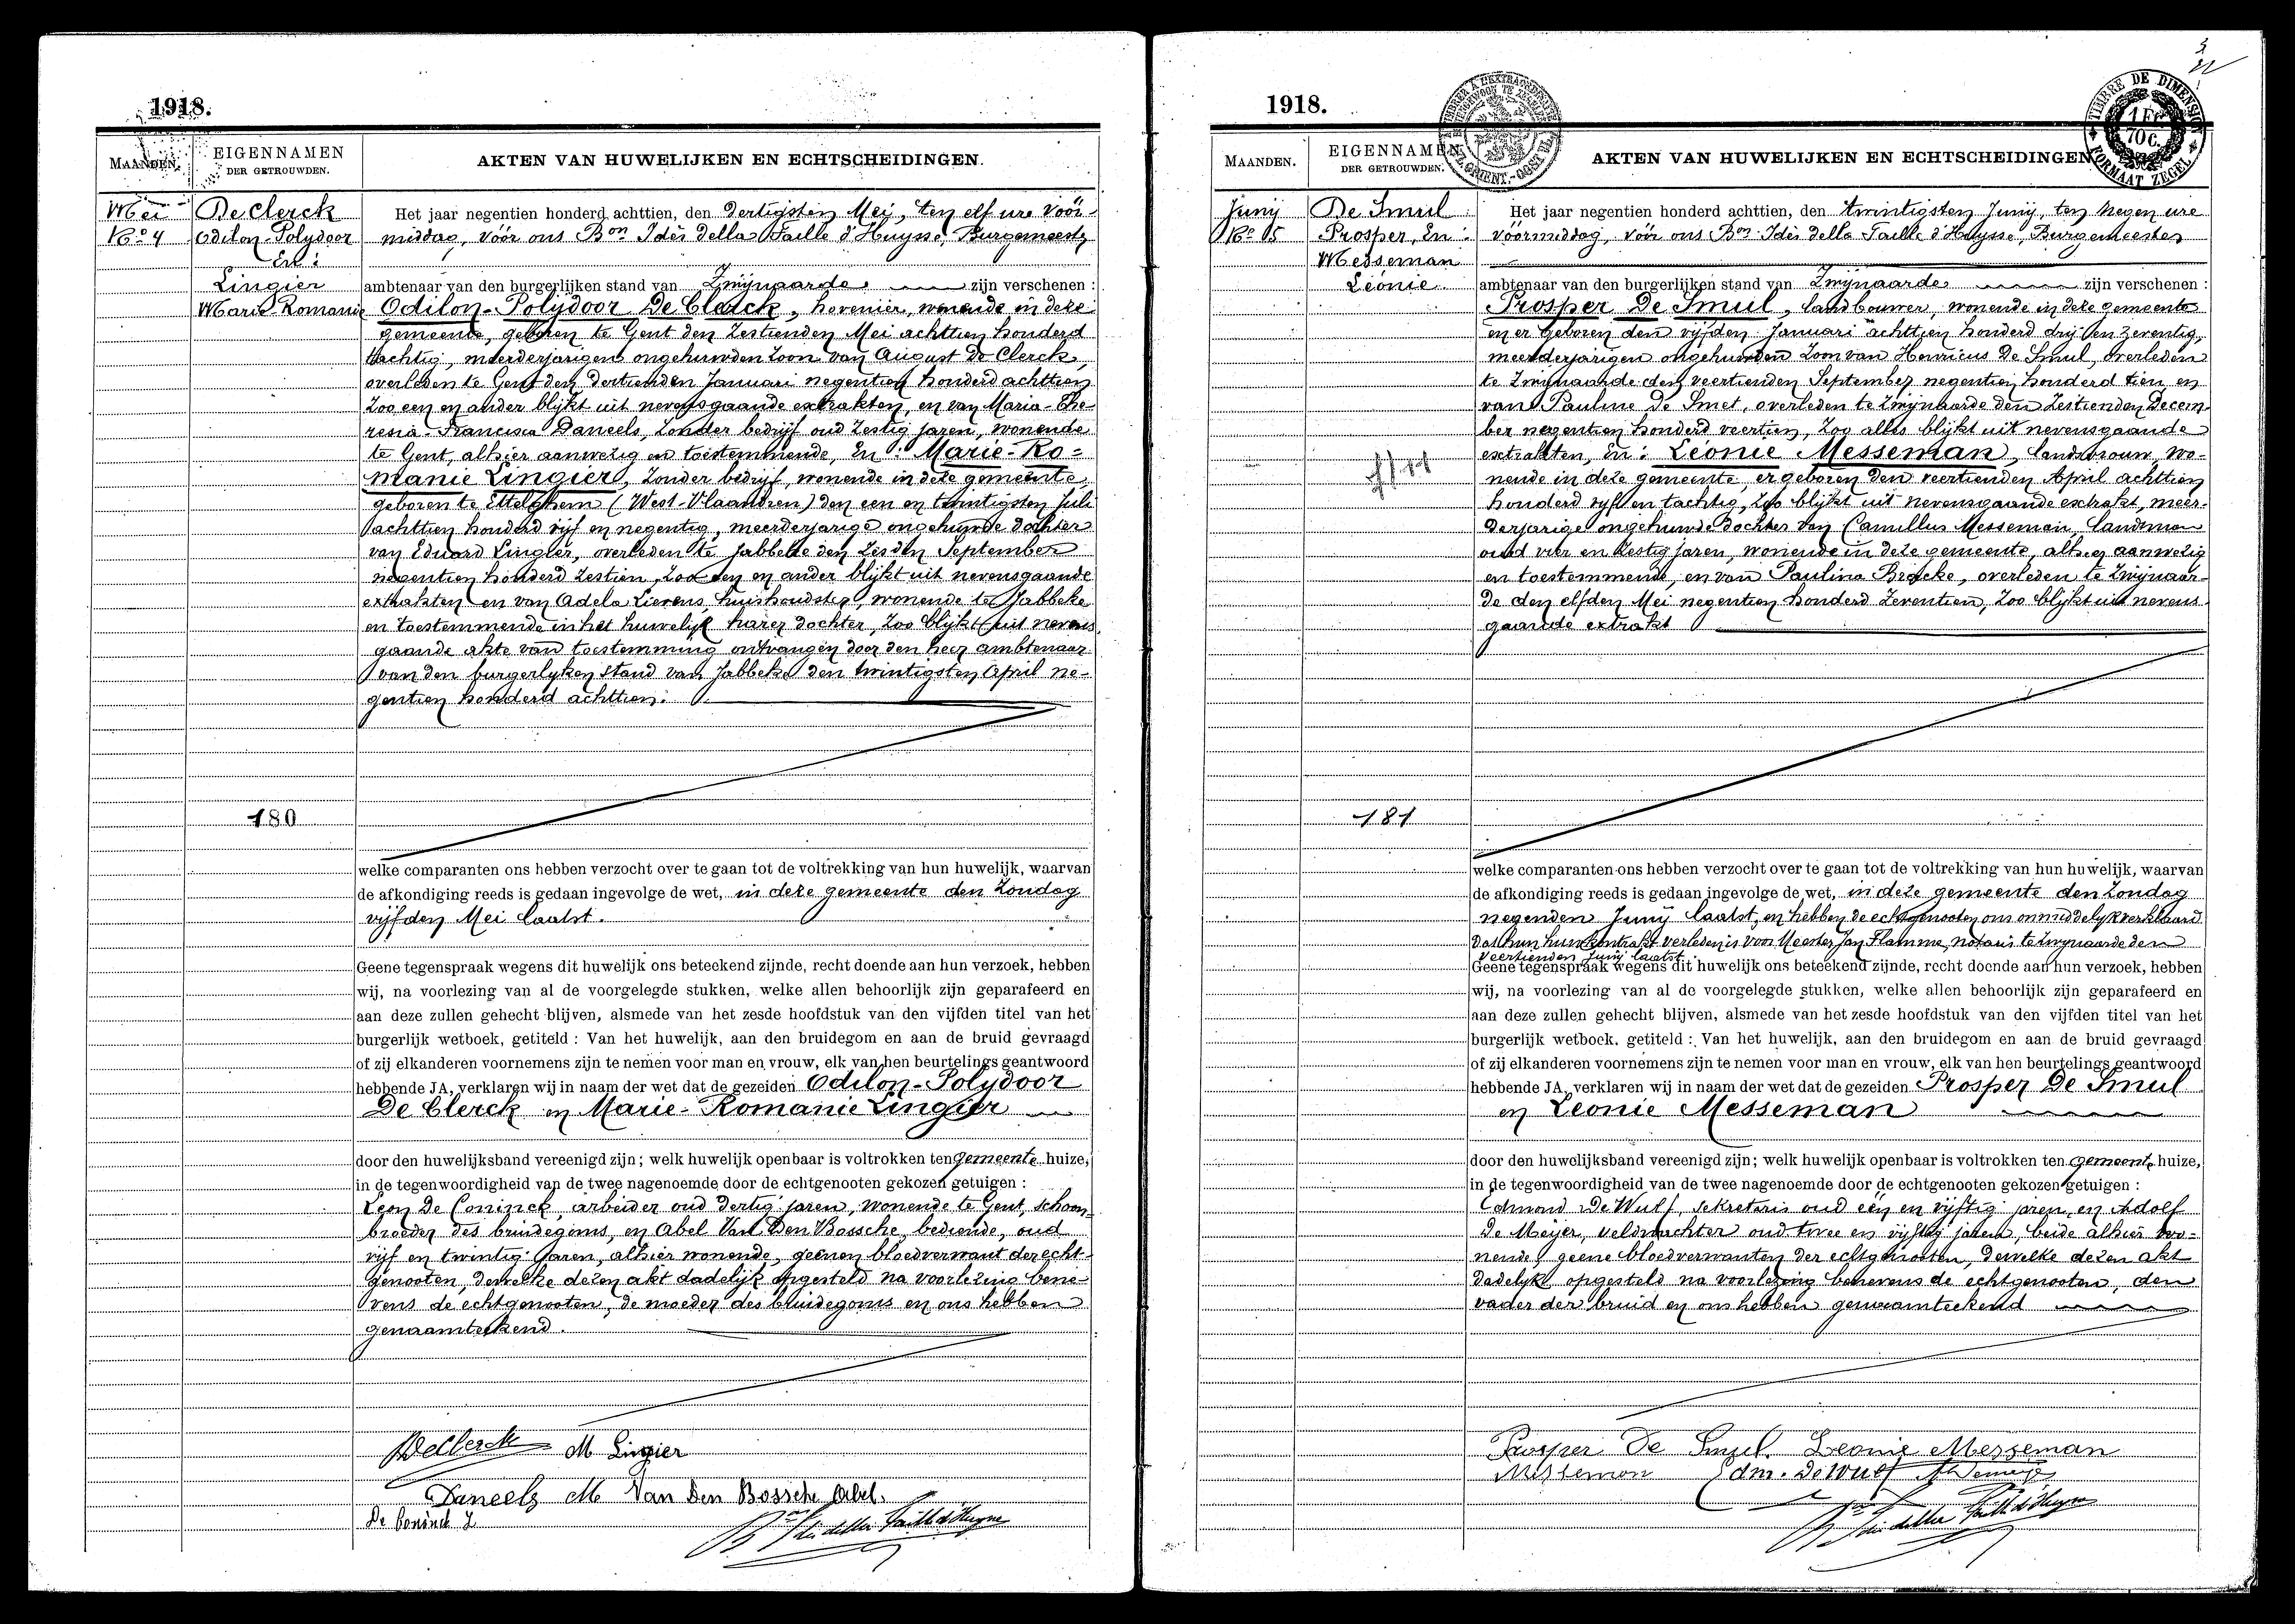 1918.
MAANDEN.
EIGENNAMEN
DER GETROUWDEN.
AKTEN VAN HUWELIJKEN EN ECHTSCHEIDINGEN.
Mei
No 4
De Clerck
Odilon-Polydoor
En:
Lingier
Marie-Romanie
180
Het jaar negentien honderd achttien, den dertigsten Mei, ten elf ure voor-
middag, vóór ons Bon Idès della Faille d'Huysse, Burgemeester
ambtenaar van den burgerlijken stand van Zwijnaarde zijn verschenen :
Odilon-Polydoor De Clerck, hovenier, wonende in deze
gemeente, geboren te Gent den zestienden Mei achttien honderd
tachtig, meerderjarigen ongehuwden zoon van August De Clerck,
overleden te Gent den dertienden Januari negentien honderd achttien
zoo een en ander blijkt uit nevensgaande extrakten, en van Maria-The-
resia-Francisca Daneels, zonder bedrijf oud zestig jaren, wonende
te Gent, alhier aanwezig en toestemmende, En: Marie-Ro-
manie Lingier, zonder bedrijf, wonende in deze gemeente,
geboren te Ettelghem (West-Vlaandren) den een en twintigsten Juli
achttien honderd vijf en negentig, meerderjarige ongehuwde dochter
van Eduard Lingier, overleden te Jabbeke den zesden September
negentien honderd zestien, zoo een en ander blijkt uit nevensgaande
extrakten en van Adela Lievens, huishoudster, wonende te Jabbeke
en toestemmende in het huwelijk harer dochter, zoo blijkt uit nevens
gaande akte van toestemming ontvangen door den heer ambtenaar
van den burgerlyken stand van Jabbeke den twintigsten April ne-
gentien honderd achttien.
welke comparanten ons hebben verzocht over te gaan tot de voltrekking van hun huwelijk, waarvan
de afkondiging reeds is gedaan ingevolge de wet, in deze gemeente den Zondag
vijfden Mei laatst.
Geene tegenspraak wegens dit huwelijk ons beteekend zijnde, recht doende aan hun verzoek, hebben
wij, na voorlezing van al de voorgelegde stukken, welke allen behoorlijk zijn geparafeerd en
aan deze zullen gehecht blijven, alsmede van het zesde hoofdstuk van den vijfden titel van het
burgerlijk wetboek, getiteld : Van het huwelijk, aan den bruidegom en aan de bruid gevraagd
of zij elkanderen voornemens zijn te nemen voor man en vrouw, elk van hen beurtelings geantwoord
hebbende JA, verklaren wij in naam der wet dat de gezeiden Odilon-Polydoor
De Clerck en Marie-Romanie Lingier
door den huwelijksband vereenigd zijn; welk huwelijk openbaar is voltrokken ten gemeente huize,
in de tegenwoordigheid van de twee nagenoemde door de echtgenooten gekozen getuigen :
Leon De Coninck, arbeider oud dertig jaren, wonende te Gent, schoon-
broeder des bruidegoms, en Abel Van Den Bossche, bediende, oud
vijf en twintig jaren, alhier wonende, geenen bloedverwant der echt-
genooten, dewelke dezen akt dadelijk opgesteld na voorlezing bene-
vens de echtgenooten, de moeder des bruidegoms en ons hebben
genaamteekend.
De Clerck M Lingier
Daneels M Van Den Bossche Abel.
De Coninck L
Bon Idès della Faille d'Huysse
1918.
TIMBRE DE DIMENSION
1 Fr
70 c.
FORMAAT ZEGEL
MAANDEN.
EIGENNAMEN
DER GETROUWDEN.
AKTEN VAN HUWELIJKEN EN ECHTSCHEIDINGEN
Junij
No 5
De Smul
Prosper, En:
Messeman
Léonie
181
Het jaar negentien honderd achttien, den twintigsten Junij, ten negen ure
voormiddag, vóór ons Bon Idès della Faille d'Huysse, Burgemeester
ambtenaar van den burgerlijken stand van Zwijnaarde zijn verschenen :
Prosper De Smul, landbouwer, wonende in deze gemeente
en er geboren den vijfden Januari achttien honderd drij en zeventig,
meerderjarigen ongehuwden zoon van Henricus De Smul, overleden
te Zwijnaarde den veertienden September negentien honderd tien en
van Pauline De Smet, overleden te Zwijnaarde den zestienden Decem-
ber negentien honderd veertien, zoo alles blijkt uit nevensgaande
extrakten, En: Léonie Messeman, landsbrouw, wo-
nende in deze gemeente, er geboren den veertienden April achttien
honderd vijf en tachtig, zoo blijkt uit nevensgaande extrakt, meer-
derjarige ongehuwde dochter van Camillus Messeman, landsman
oud vier en zestig jaren, wonende in deze gemeente, alhier aanwezig
en toestemmende, en van Paulina Bracke, overleden te Zwijnaar-
de den elfden Mei negentien honderd zeventien, zoo blijkt uit nevens
gaande extrakt
welke comparanten ons hebben verzocht over te gaan tot de voltrekking van hun huwelijk, waarvan
de afkondiging reeds is gedaan ingevolge de wet, in deze gemeente den Zondag
negenden Junij laatst, en hebben de echtgenooten ons onmiddelyk verklaard
dat hun huwkontrakt verleden is voor Meester Jan Flamme, notaris te Zwynaarde den
veertienden Junij laatst.
Geene tegenspraak wegens dit huwelijk ons beteekend zijnde, recht doende aan hun verzoek, hebben
wij, na voorlezing van al de voorgelegde stukken, welke allen behoorlijk zijn geparafeerd en
aan deze zullen gehecht blijven, alsmede van het zesde hoofdstuk van den vijfden titel van het
burgerlijk wetboek, getiteld : Van het huwelijk, aan den bruidegom en aan de bruid gevraagd
of zij elkanderen voornemens zijn te nemen voor man en vrouw, elk van hen beurtelings geantwoord
hebbende JA, verklaren wij in naam der wet dat de gezeiden Prosper De Smul
en Leonie Messeman
door den huwelijksband vereenigd zijn; welk huwelijk openbaar is voltrokken ten gemeente huize,
in de tegenwoordigheid van de twee nagenoemde door de echtgenooten gekozen getuigen :
Edmond De Wulf, sekretaris oud eén en vijftig jaren, en Adolf
De Meijer, veldwachter oud twee en vijftig jaren, beide alhier wo-
nende, geene bloedverwanten der echtgenooten, dewelke dezen akt
dadelijk opgesteld na voorlezing benevens de echtgenooten, den
vader der bruid en ons hebben genaamteekend
Prosper De Smul. Leonie Messeman
Messeman Edm. De Wulf
Bon Idès della Faille d'Huysse